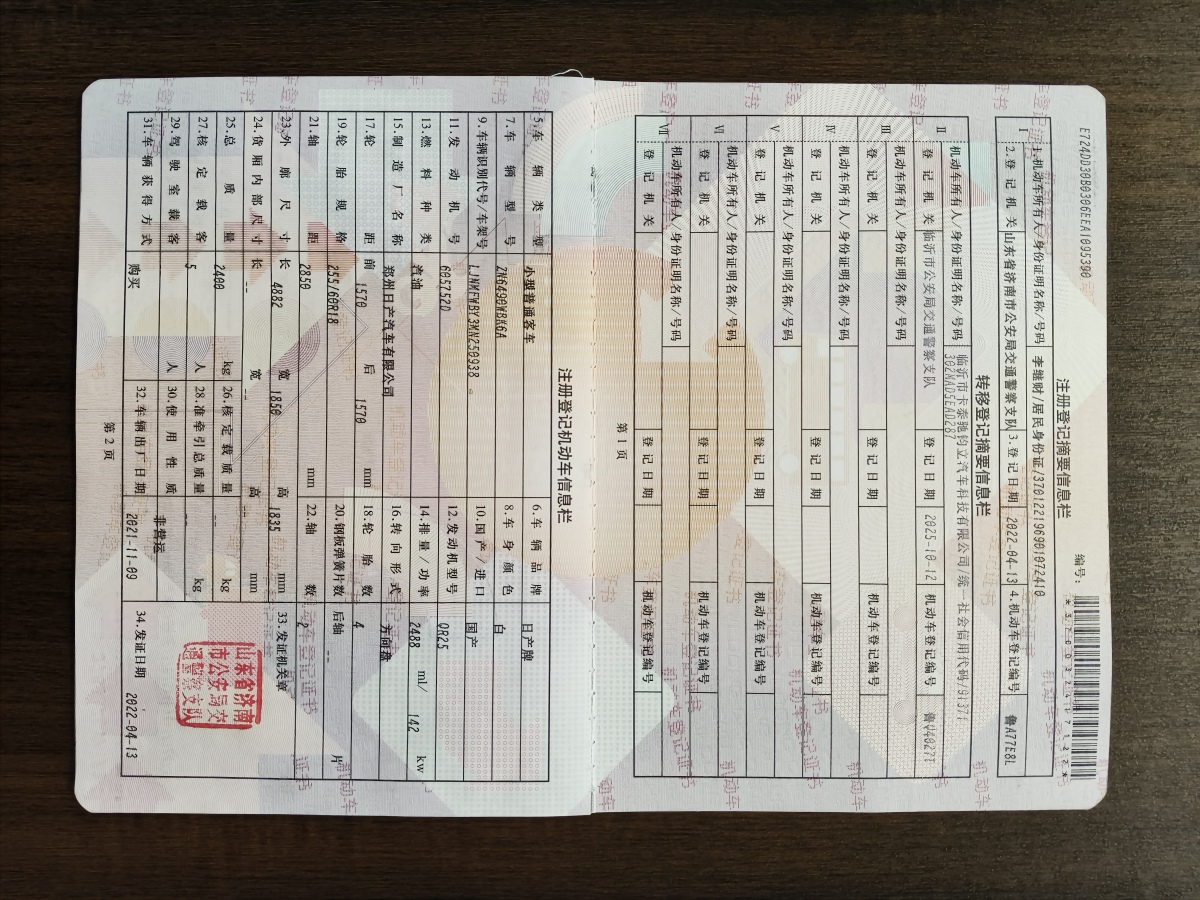 E724DD30B0306EEA1095390
编号:
注册登记摘要信息栏
Ⅰ 1.机动车所有人/身份证明名称/号码 李继财/居民身份证/370122196901072410
2.登记机关 山东省济南市公安局交通警察支队 3.登记日期 2022-04-13 4.机动车登记编号 鲁A77E8L
转移登记摘要信息栏
Ⅱ 机动车所有人/身份证明名称/号码 临沂市卡泰驰钧立汽车科技有限公司/统一社会信用代码/91371
302MAD5EAD287
登记机关 临沂市公安局交通警察支队 登记日期 2025-10-12 机动车登记编号 鲁V4027T
Ⅲ 机动车所有人/身份证明名称/号码
登记机关 登记日期 机动车登记编号
Ⅳ 机动车所有人/身份证明名称/号码
登记机关 登记日期 机动车登记编号
Ⅴ 机动车所有人/身份证明名称/号码
登记机关 登记日期 机动车登记编号
Ⅵ 机动车所有人/身份证明名称/号码
登记机关 登记日期 机动车登记编号
Ⅶ 机动车所有人/身份证明名称/号码
登记机关 登记日期 机动车登记编号
第1页
注册登记机动车信息栏
5.车辆类型 小型普通客车 6.车辆品牌 日产牌
7.车辆型号 ZN6490WBK6A 8.车身颜色 白
9.车辆识别代号/车架号 LJNMFWBY3MN250938 10.国产/进口 国产
11.发动机号 605752D 12.发动机型号 QR25
13.燃料种类 汽油 14.排量/功率 2488 ml/ 142 kw
15.制造厂名称 郑州日产汽车有限公司 16.转向形式 方向盘
17.轮距 前 1570 后 1570 mm 18.轮胎数 4
19.轮胎规格 255/60R18 20.钢板弹簧片数 后轴 -- 片
21.轴距 2850 mm 22.轴数 2
23.外廓尺寸 长 4882 宽 1850 高 1835 mm 33.发证机关章
24.货厢内部尺寸 长 -- 宽 -- 高 -- mm
25.总质量 2400 kg 26.核定载质量 -- kg
27.核定载客 5 人 28.准牵引总质量 -- kg
29.驾驶室载客 人 30.使用性质 非营运
山东省济南
市公安局交
通警察支队
31.车辆获得方式 购买 32.车辆出厂日期 2021-11-09 34.发证日期 2022-04-13
第2页